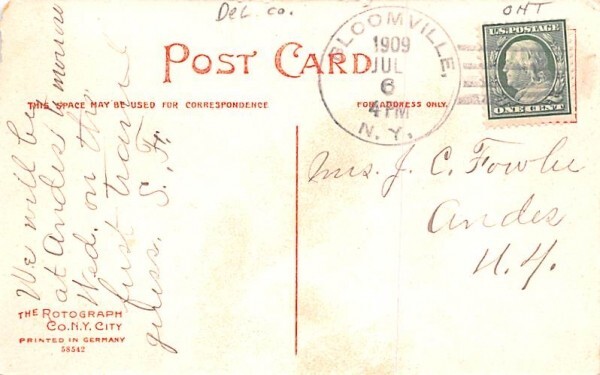 Del. co.
OHT
BLOOMVILLE,
1909
JUL
6
4 PM
N.Y.
U.S. POSTAGE
ONE CENT
POST CARD
THIS SPACE MAY BE USED FOR CORRESPONDENCE
FOR ADDRESS ONLY.
We will be
at Andes to morrow
Wed. on the
first train I
guess. S. F.
Mrs. J. C. Fowler
Andes
N. Y.
THE ROTOGRAPH
CO. N.Y. CITY
PRINTED IN GERMANY
58542